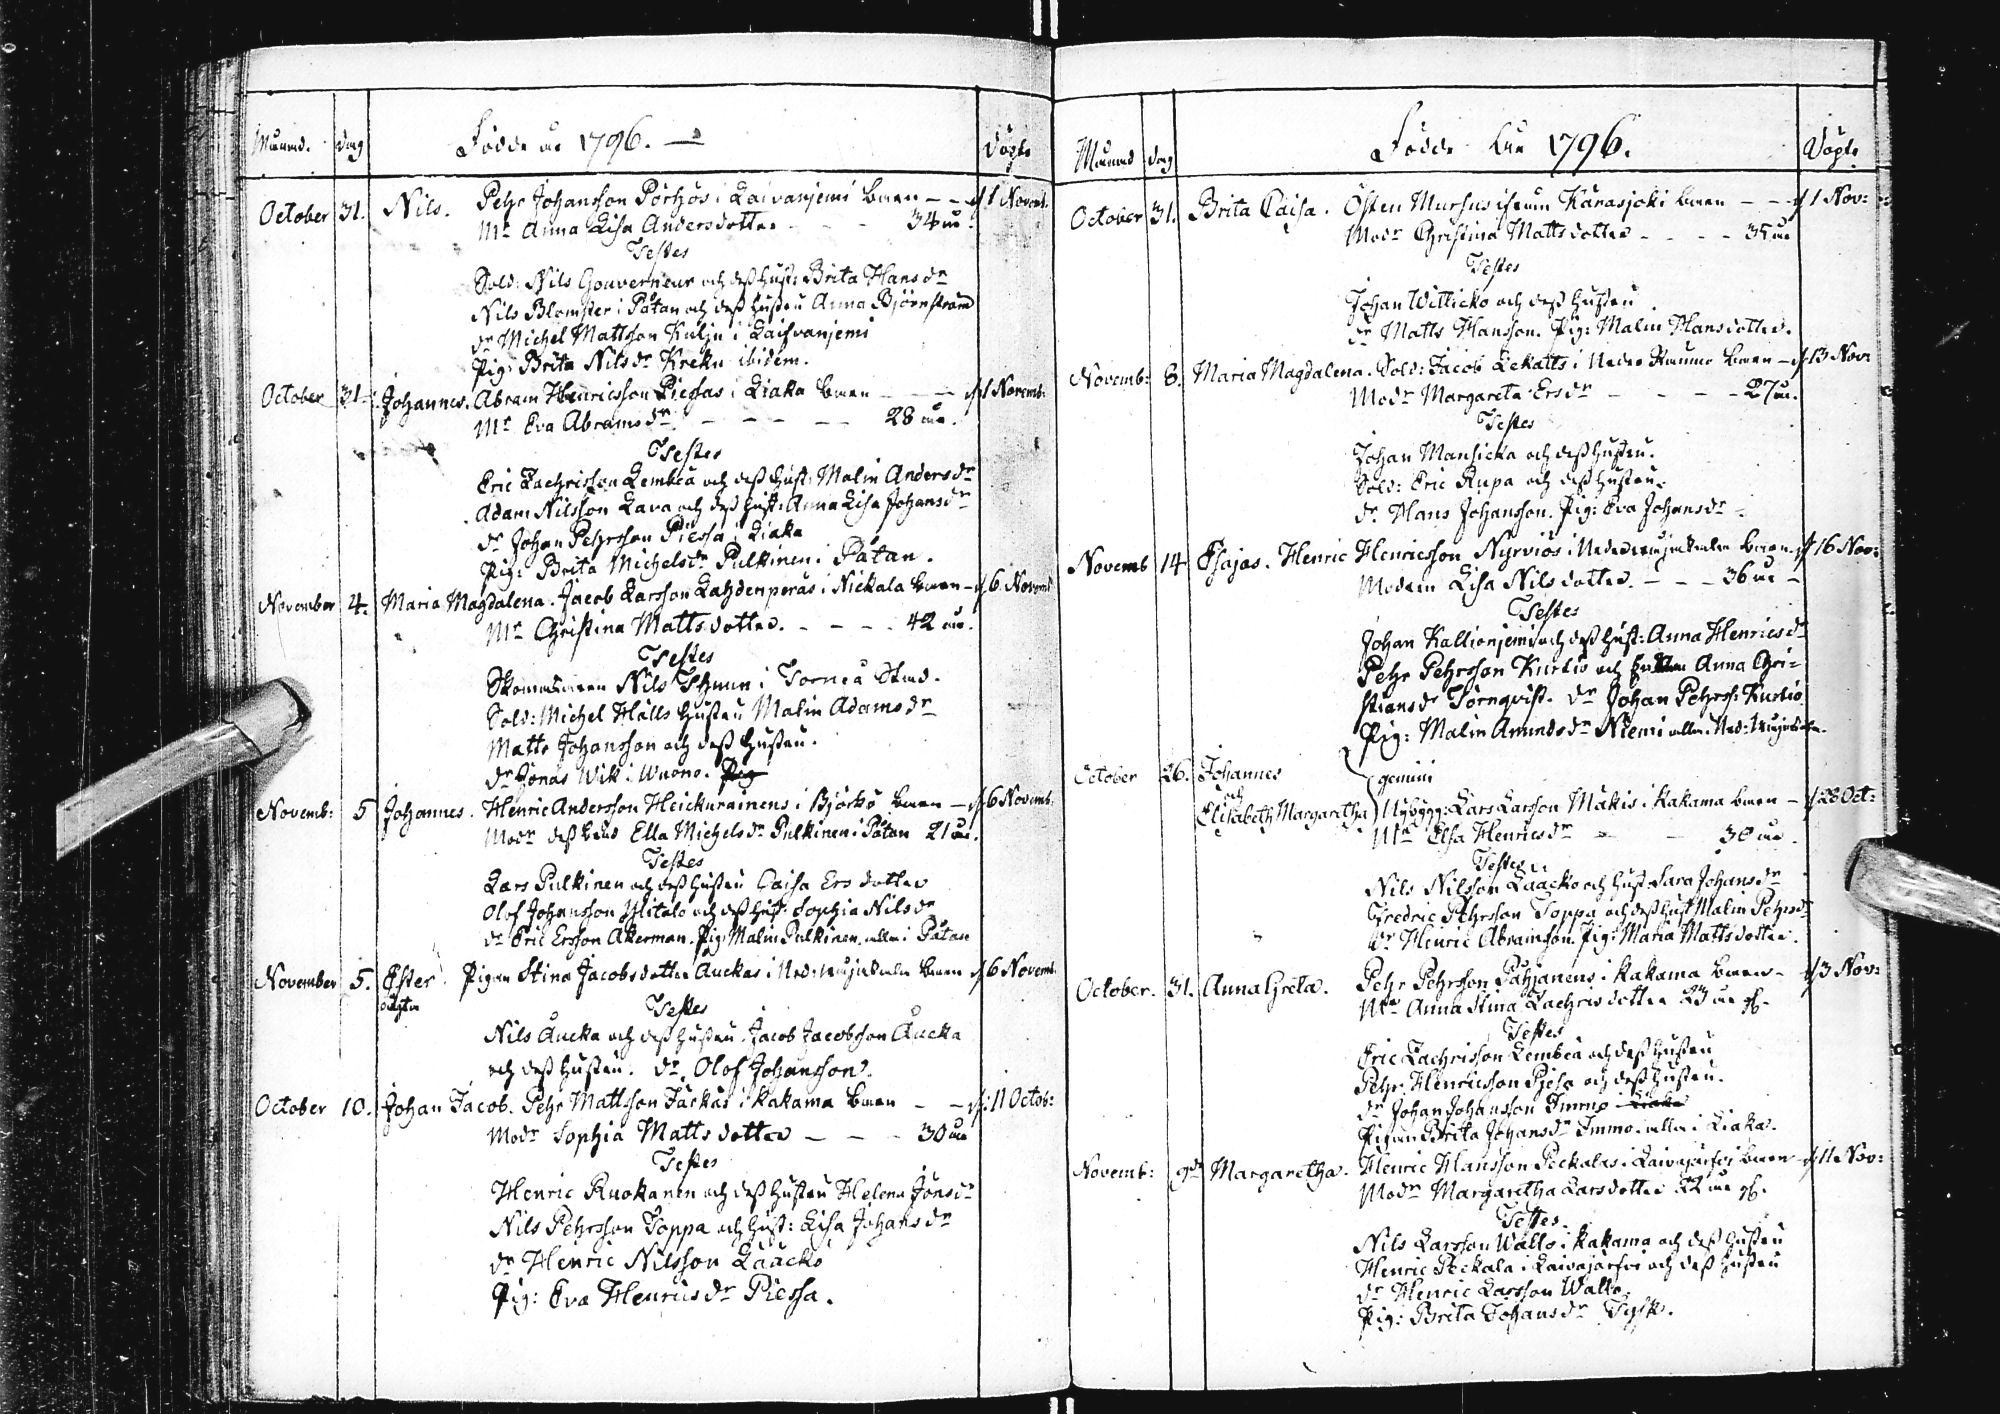 Månad. dag Födde år 1796. Döpte
October 31. Nils. Pehr Johansson Pörhös i Laivanjemi barn d 1 Novemb.
Mr Anna Lisa Andersdotter 34 år.
Testes
Sold: Nils Gouverneur och deß hust: Brita Hansdr
Nils Blomster i Pätan och deß hustru Anna Björnström
dr Michel Mattsson Kulju i Laifvanjemi
Pig: Brita Nilsdr Kreku ibidem.
October 31. Johannes. Abram Henricsson Piessas i Liaka barn d 1 Novemb:
Mr Eva Abramsdr 28 år.
Testes
Eric Zachrisson Lembeä och deß hust: Malin Andersdr
Adam Nilsson Lava och deß hust: Anna Lisa Johansdr
dr Johan Pehrsson Piessa i Liaka
Pig: Brita Michelsdr Pulkinen i Pätan.
November 4. Maria Magdalena. Jacob Larsson Lahdenperäs i Nickala barn d 6 Novemb
Mr Christina Mattsdotter. 42 år.
Testes
Skomakaren Nils Thunn i Torneå Stad.
Sold: Michel Hälls hustru Malin Adamsdr
Matts Johansson och deß hustru.
dr Jonas Wik i Wuono. Pig
Novemb: 5 Johannes. Henric Andersson Heickurainens i Björkö barn d 6 Novemb.
Modr deß hust Ella Michelsdr Pulkinen i Pätan 21 år.
Testes
Lars Pulkinen och deß hustru Caisa Ersdotter
Olof Johansson Ylitalo och deß hust: Sophia Nilsdr
dr Eric Ersson Åkerman. Pig: Malin Pulkinen. alla i Pätan
November 5. Ester Pigan Stina Jacobsdotter Auckas i Ned: Wojakala barn d 6 Novemb.
oägta Testes
Nils Aucka och deß hustru. Jacob Jacobsson Aucka
och deß hustru. dr. Olof Johansson.
October 10. Johan Jacob. Pehr Mattsson Färkäs i Kakama barn d: 11 Octob:
Modr Sophia Mattsdotter 30 år
Testes
Henric Ruokanen och deß hustru Helena Jönsdr
Nils Pehrsson Toppa och hust: Lisa Johansdr
dr Henric Nilsson Laacko
Pig: Eva Henricsdr Piessa.
Månad dag Födde år 1796. Döpte
October 31. Brita Caisa. Östen Mursus ifrån Karasjoki barn d 1 Nov:
Modr Christina Mattsdotter 35 år
Testes
Johan Witticko och deß hustru
dr Matts Hansson. Pig: Malin Hansdotter.
Novemb: 8. Maria Magdalena. Sold: Jacob Lekatts i Neder Raumo barn d 13 Nov:
Modr Margareta Ersdr 27 år.
Testes
Johan Mansicka och deß hustru.
Sold: Eric Rupa och deß hustru.
dr Hans Johansson. Pig: Eva Johansdr
Novemb 14 Esajas. Henric Henricsson Nyrviös i Nedervojakala barn. d 16 Nov:
Modren Lisa Nilsdotter. 36 år
Testes
Johan Kallionjemi och deß hust: Anna Henricsdr
Pehr Pehrsson Kurtio och Anna Chri=
stiansdr Törnqvist. dr Johan Pehrss: Kurtio
Pig: Malin Amundsdr Niemi alla i Ned: Wojakala.
October 26. Johannes gemini
och
Elisabeth Margaretha Nybygg: Lars Larsson Mäkis i Kakama barn d 28 Oct:
Mr Elsa Henricsdr 30 år.
Testes
Nils Nilsson Laacko och hust Sara Johansdr
Fredric Pehrsson Toppa och deß hust Malin Pehrsdr
dr Henric Abramson. Pig: Maria Mattsdotter.
October. 31. Anna Greta. Pehr Pehrsson Pahjanens i Kakama barn d 3 Nov:
Mr Anna Stina Zachrisdotter 23 år gl.
Testes
Eric Zachrisson Lembeä och deß hustru
Pehr Henricsson Piessa och deß hustru.
dr Johan Johansson Immo i Liaka
Pigan Brita Johansdr Immo. alla i Liaka.
Novemb: 9de Margaretha. Henric Hansson Peckalas i Laivajärfvi barn d 11 Nov:
Modr Margaretha Larsdotter 22 år gl.
Testes.
Nils Larsson Wallo i Kakama och deß hustru
Henric Peckala i Laivajärfvi och deß hustru
dr Henric Larsson Wallo.
Pig: Brita Johansdr Tysk.